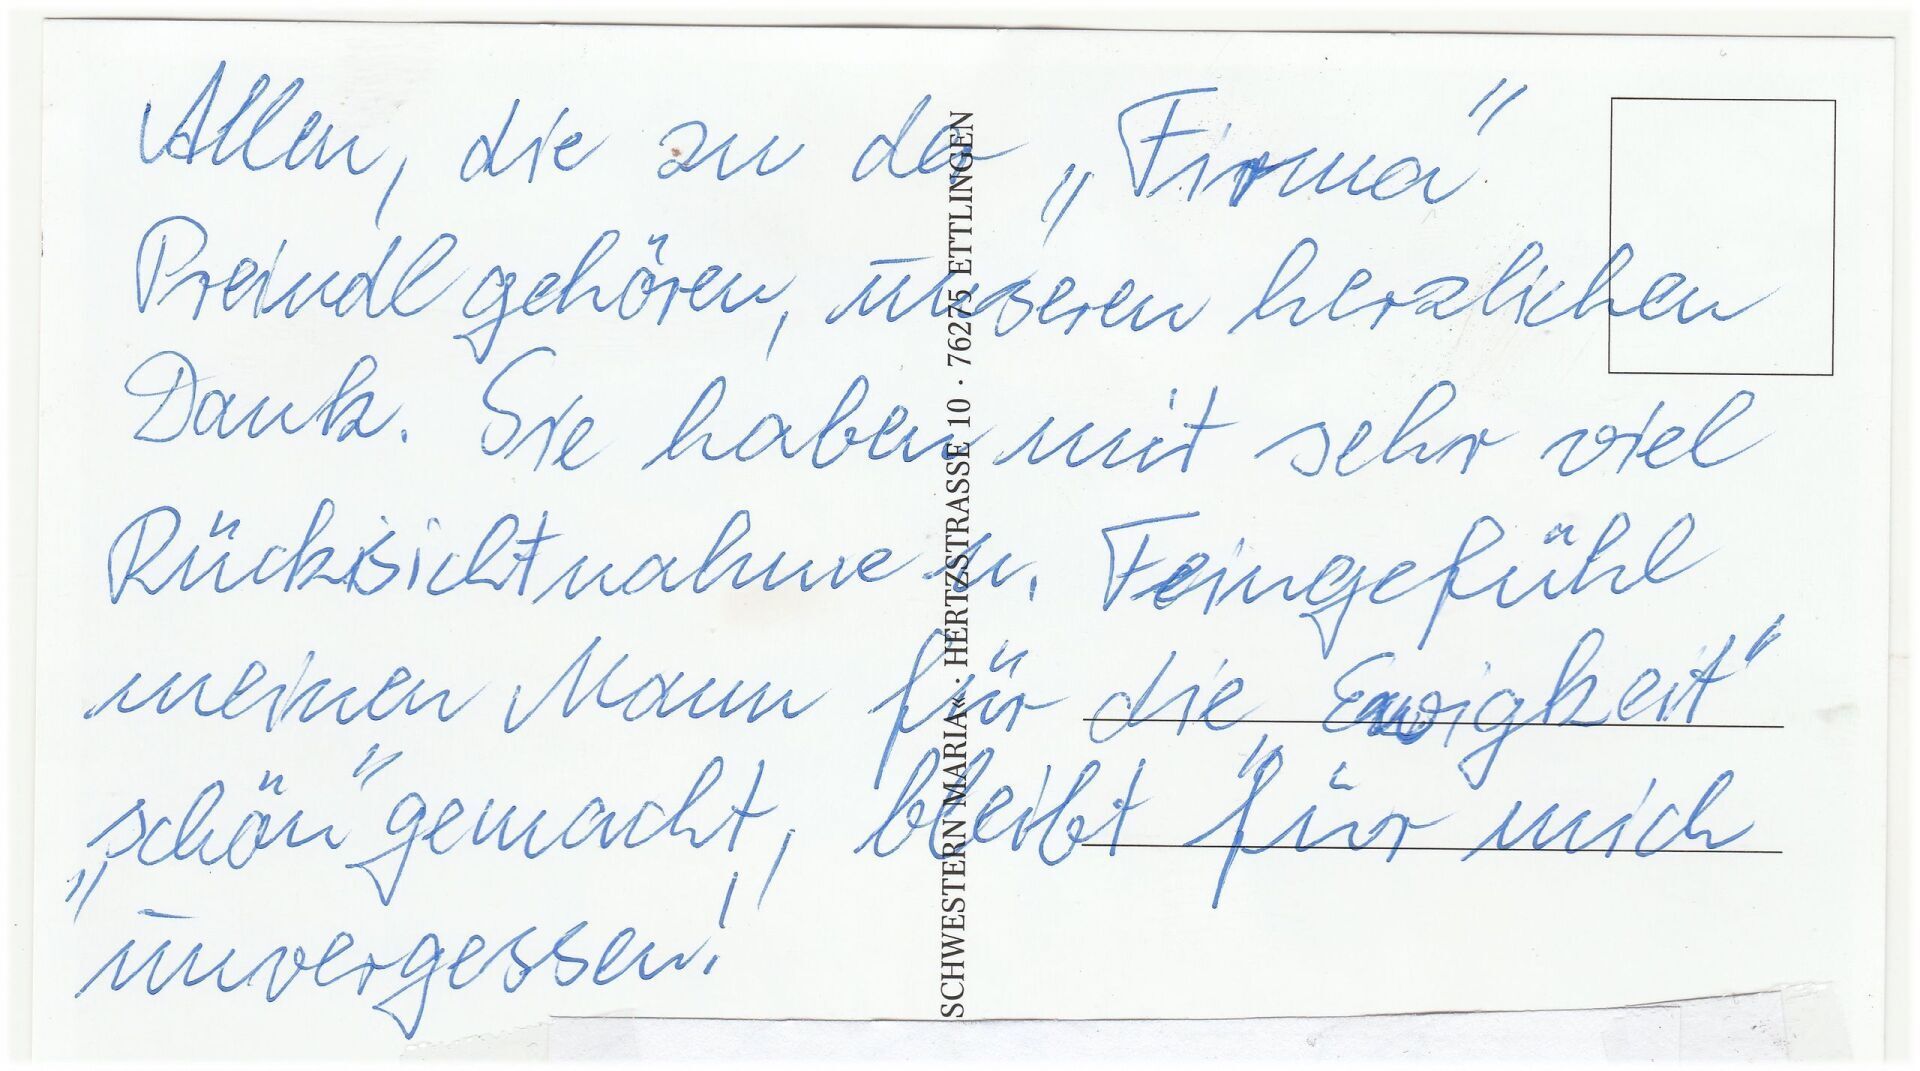 Allen, die zu der „Firma"
Preindl gehören, unseren herzlichen
Dank. Sie haben mit sehr viel
Rücksichtnahme u. Feingefühl
meinen Mann für die Ewigkeit"
„schön" gemacht, bleibt für mich
unvergessen!
SCHWESTERN MARIA« · HERTZSTRASSE 10 · 76275 ETTLINGEN